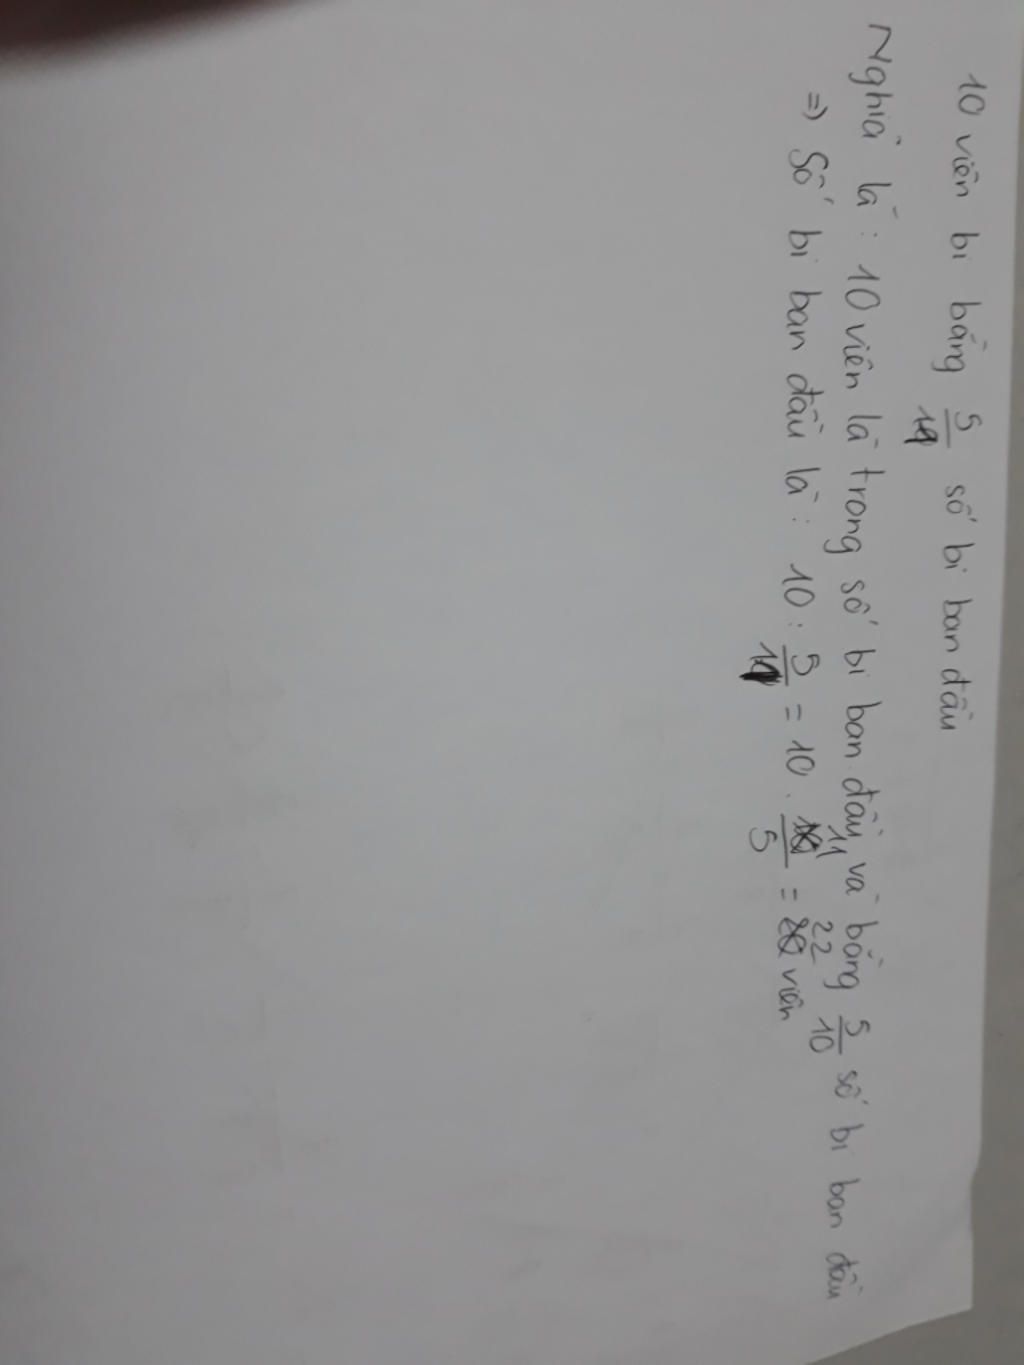 10 viên bi bằng 5/11 số bi ban đầu
Nghĩa là: 10 viên là trong số bi ban đầu và bằng 5/10 số bi ban đầu
=> Số bi ban đầu là: 10 : 5/11 = 10 . 11/5 = 22 viên